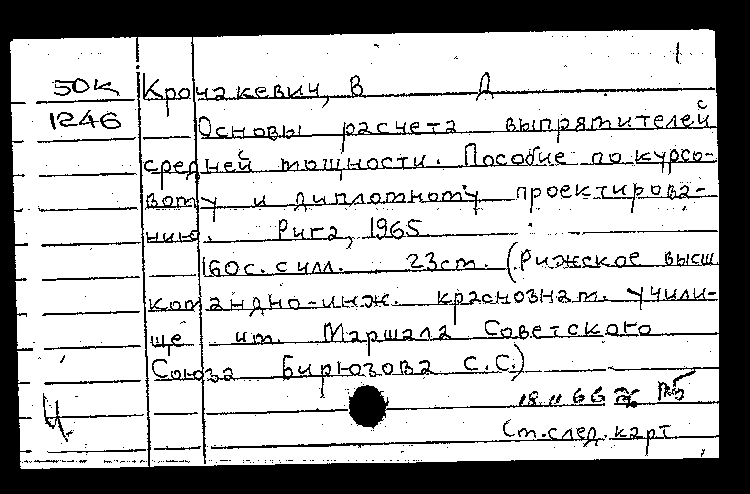 1
50К Крочакевич, В Д
1246 Основы расчета выпрямителей
средней мощности. Пособие по курсо-
вому и дипломному проектирова-
нию. Рига, 1965
160с. с илл. 23см. (Рижское высш.
командно-инж. краснознам. учили-
ще им. Маршала Советского
Союза Бирюзова С.С.)
18 11 66
Ст. след. карт